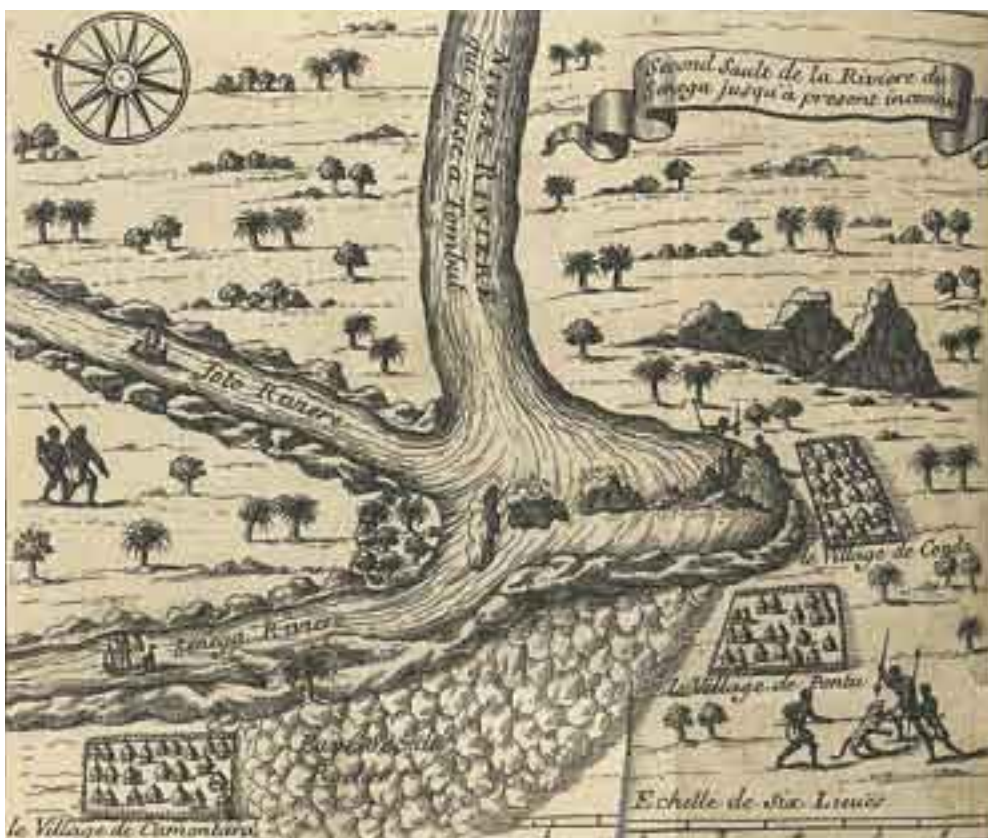 Second Sault de la Riviere du
Senega jusqu'a present inconnu
RIVIERE
qui passe a Tombut
Senega Riviere
le Village de Conda
le Village de Pontu
Echelle de Six Lieues
le Village de Camontara